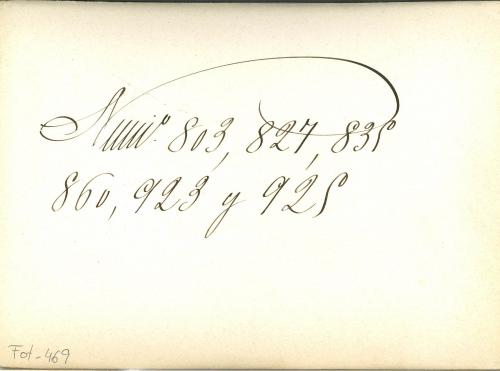 Num.º 803, 827, 835
860, 923 y 925
Fot-469